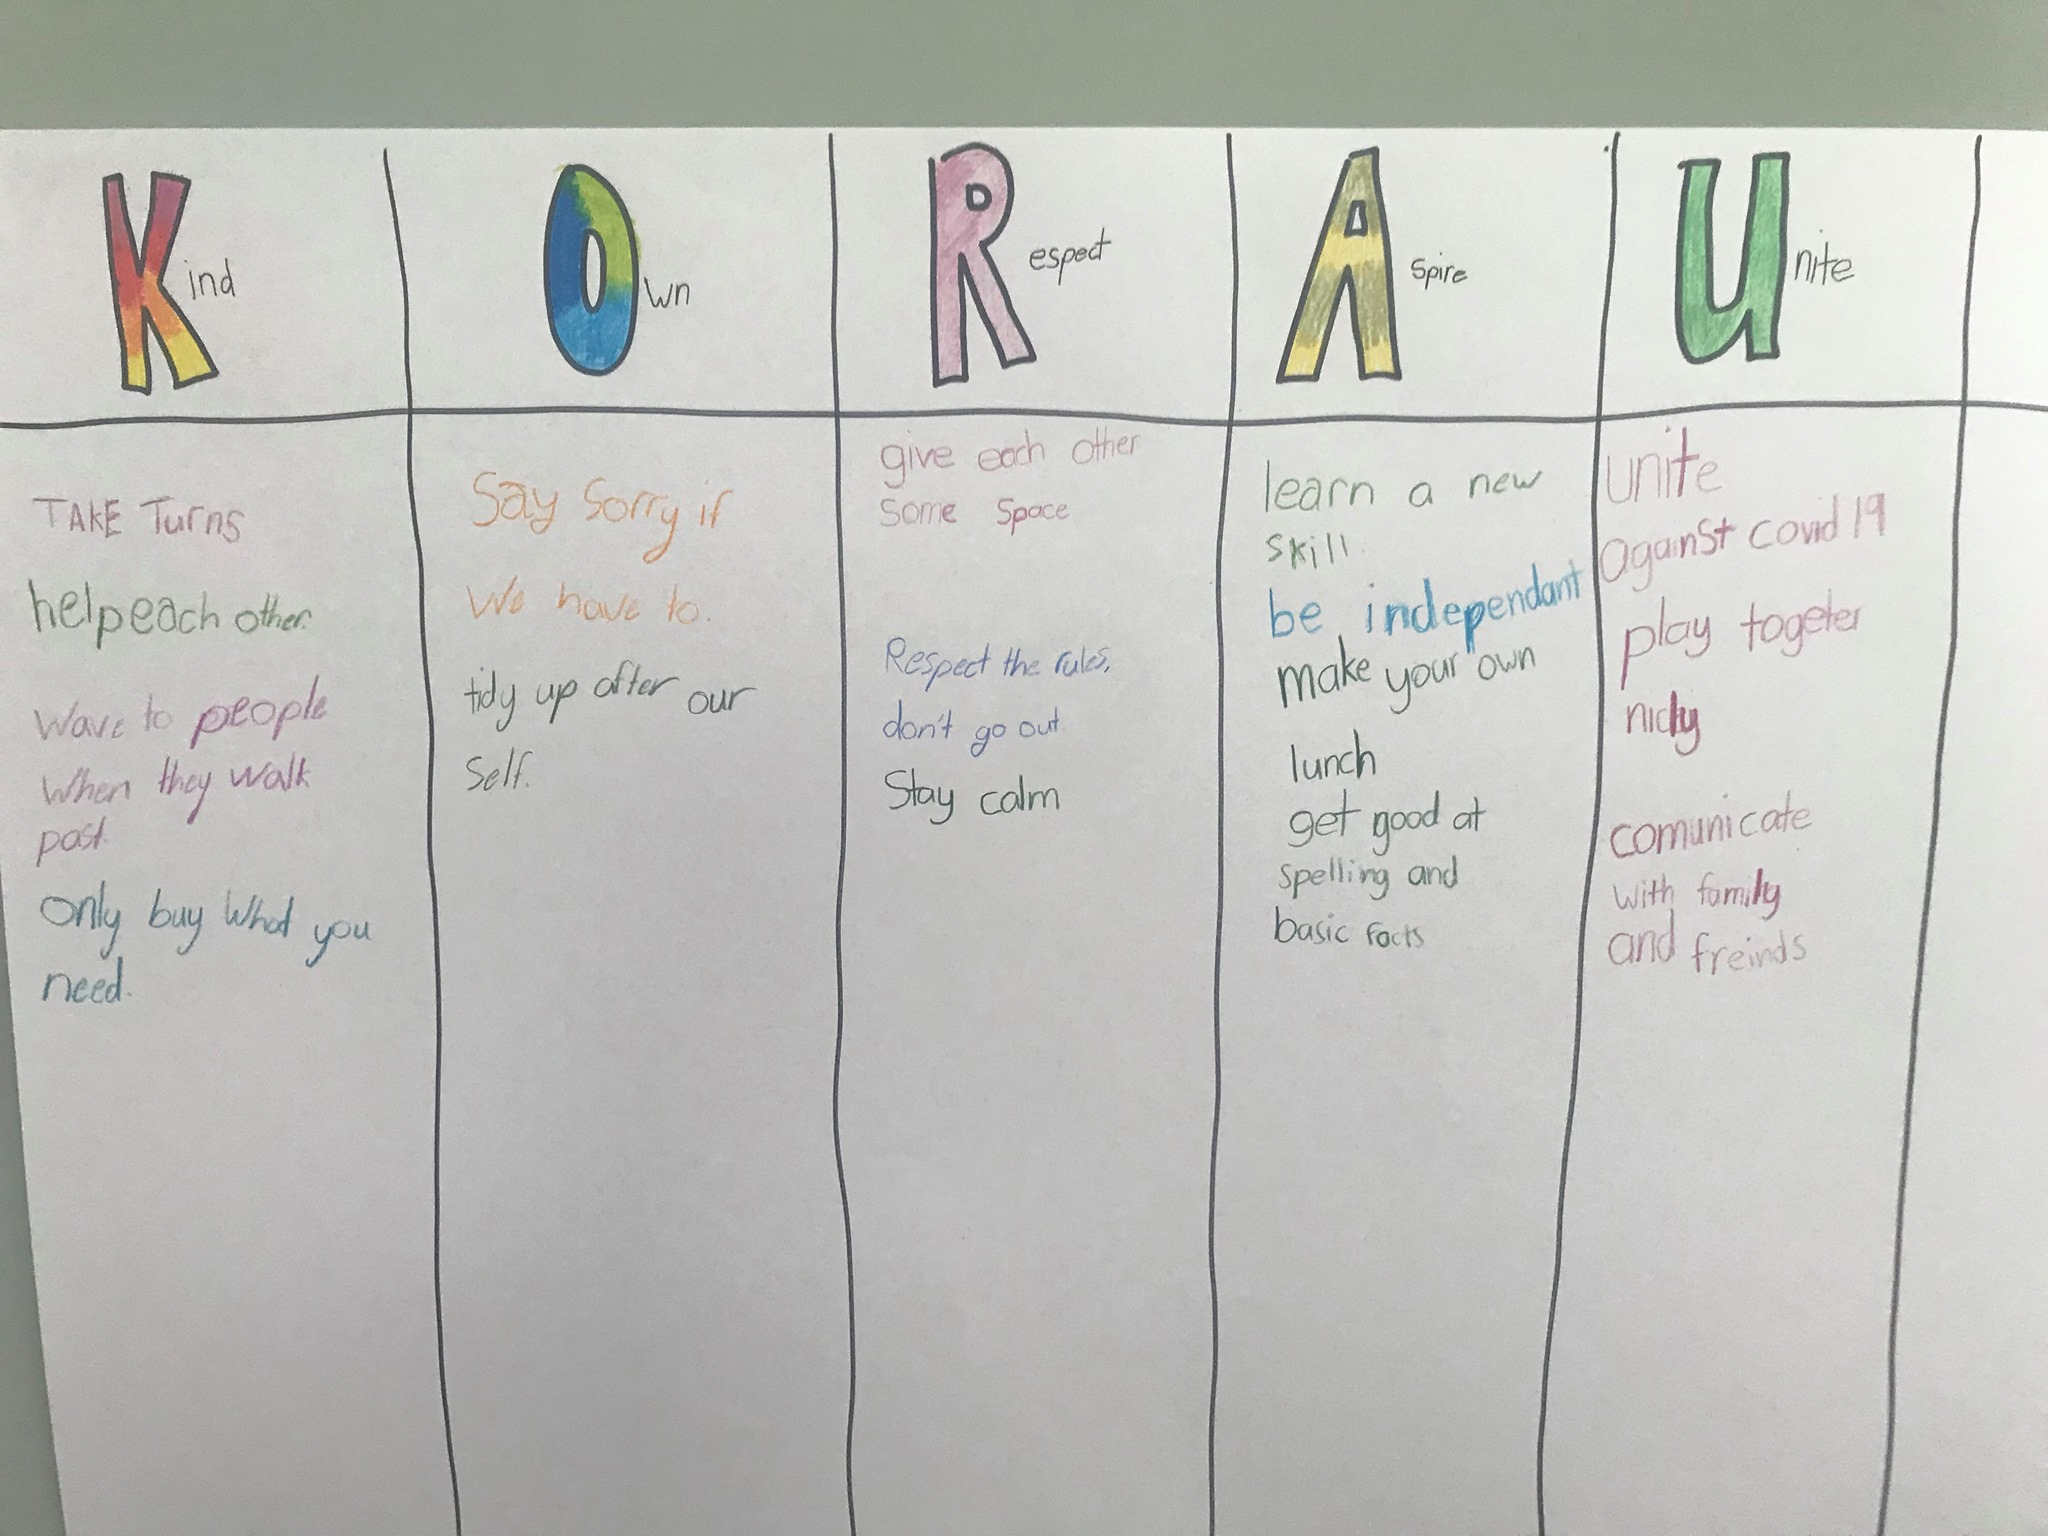 Kind
Own
Respect
Aspire
Unite
TAKE Turns
help each other.
Wave to people
When they walk
past.
Only buy What you
need.
Say Sorry if
We have to.
tidy up after our
Self.
give each other
Some Space
Respect the rules,
don't go out
Stay calm
learn a new
skill.
be independant
make your own
lunch
get good at
spelling and
basic facts
unite
against covid 19
play togeter
nicly
comunicate
with family
and freinds